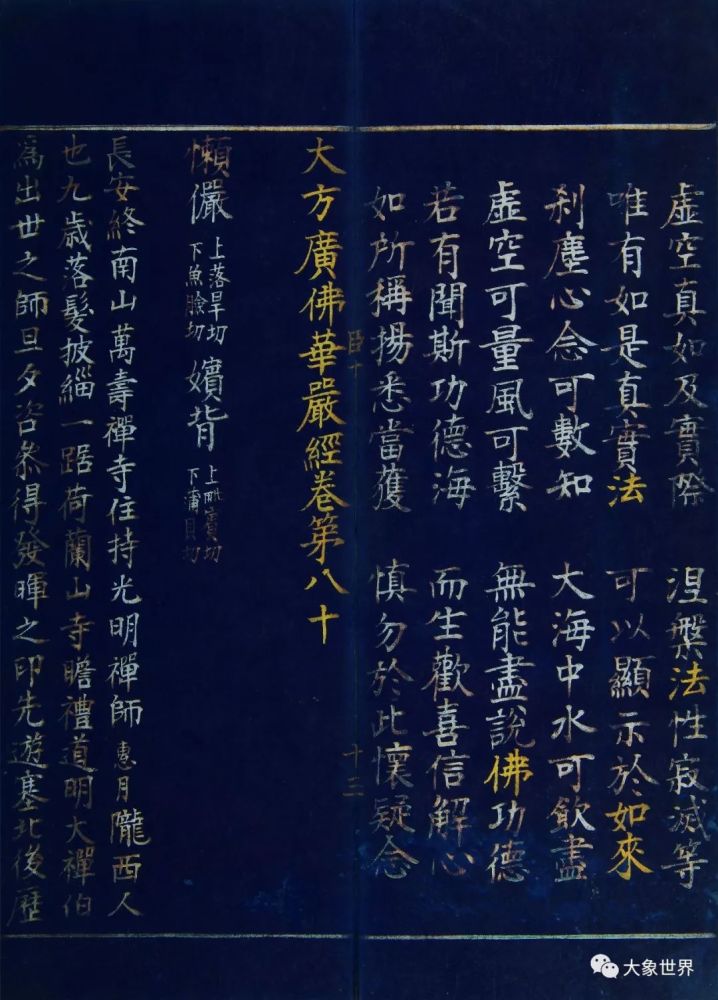 虛空真如及實際　涅槃法性寂滅等
唯有如是真實法　可以顯示於如來
刹塵心念可數知　大海中水可飲盡
虛空可量風可繫　無能盡說佛功德
若有聞斯功德海　而生歡喜信解心
如所稱揚悉當獲　慎勿於此懷疑念
十三
大方廣佛華嚴經卷第八十
懶儼 上落旱切 下魚臉切 嬪背 上毗賓切 下蒲貝切
長安終南山萬壽禪寺住持光明禪師惠月隴西人
也九歲落髮披緇一踞荷蘭山寺瞻禮道明大禪伯
爲出世之師旦夕咨叅得發暉之印先遊塞北後歷
大象世界